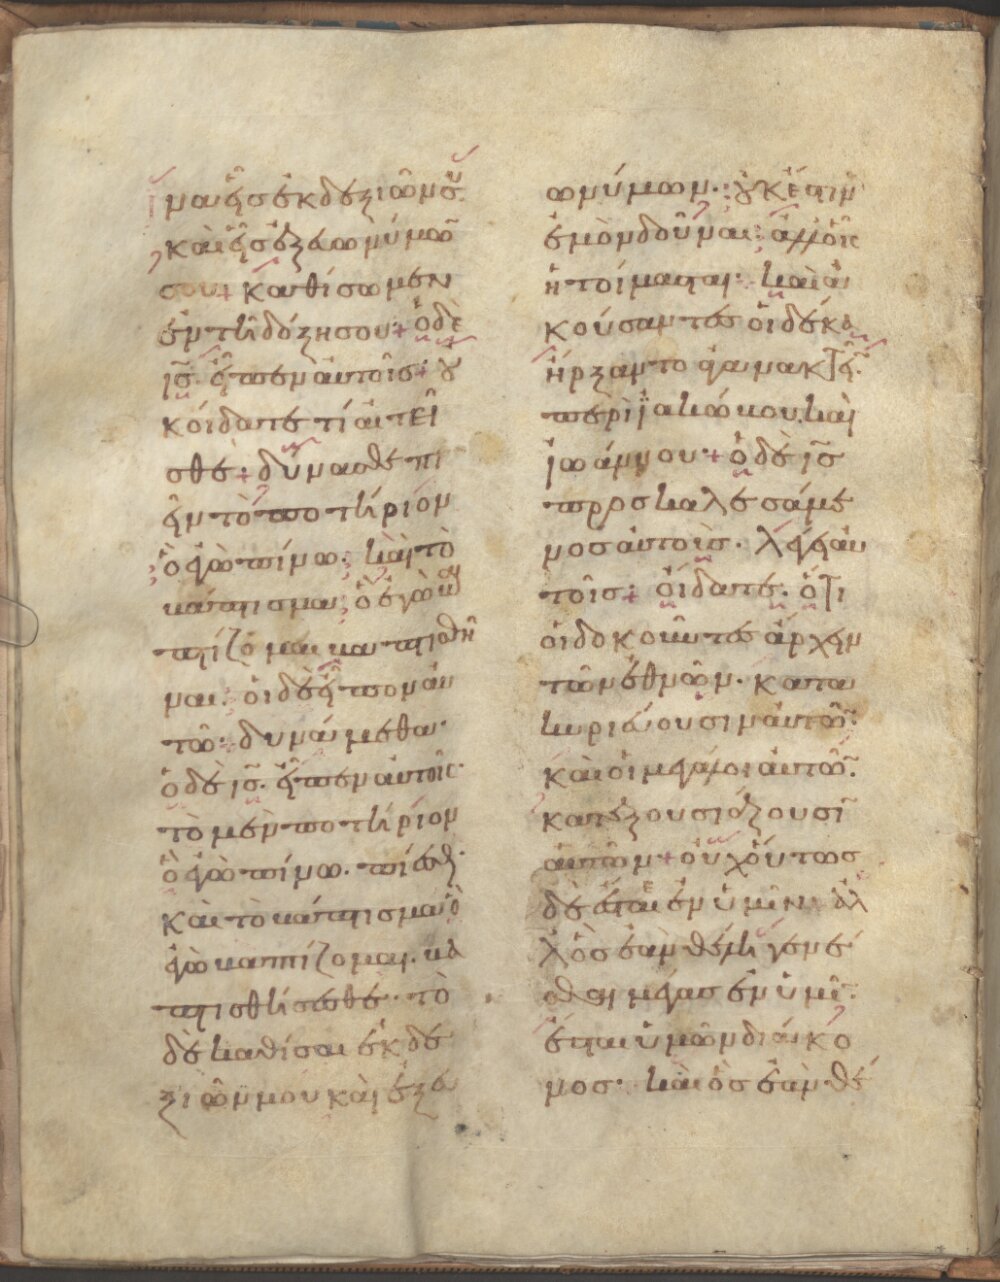 ἵνα εἷς ἐκ δεξιῶν σου
καὶ εἷς ἐξ εὐωνύμων
σου + καθίσωμεν
ἐν τῇ δόξῃ σου + ὁ δὲ
ις̅ εἶπεν αὐτοῖς + οὐ
κ οἴδατε τί αἰτεῖ
σθε + δύνασθε πι
εῖν τὸ ποτήριον
ὃ ἐγὼ πίνω. καὶ τὸ
βάπτισμα ὃ ἐγὼ βα
πτίζομαι βαπτισθῆ
ναι. οἱ δὲ εἶπον αὐ
τῶ. δυνάμεθα.
ὁ δὲ ις̅. εἶπεν αὐτοῖς.
τὸ μὲν ποτήριον
ὃ ἐγὼ πίνω. πίεσθε.
καὶ τὸ βάπτισμα ὃ
ἐγὼ βαπτίζομαι. βα
πτισθήσεσθε. τὸ
δὲ καθίσαι ἐκ δε
ξιῶν μου καὶ ἐξ εὐ
ωνύμων. οὐκ ἔστιν
ἐμὸν δοῦναι. ἀλλ οἷς
ἡτοίμασται. καὶ ἀ
κούσαντες οἱ δέκα
ἤρξαντο ἀγανακτεῖν
περὶ ϊακώβου. καὶ
ἰωάννου. + ὁ δὲ ις̅
προσκαλεσάμε
νος αὐτοὺς. λέγει αὐ
τοῖς + οἴδατε. ὅτι
οἱ δοκοῦντες ἄρχειν
τῶν ἐθνῶν. κατα
κυριεύουσιν αὐτῶν.
καὶ οἱ μεγάλοι αὐτῶν.
κατεξουσιάζουσιν
αὐτῶν + οὐχ οὕτως
δὲ ἔσται ἐν ὑμῖν. ἀλ
λ ὃς ἐὰν θέλῃ γενέ
σθαι μέγας ἐν ὑμῖν.
ἔσται ὑμῶν διάκο
νος. καὶ ὃς ἐὰν θέ